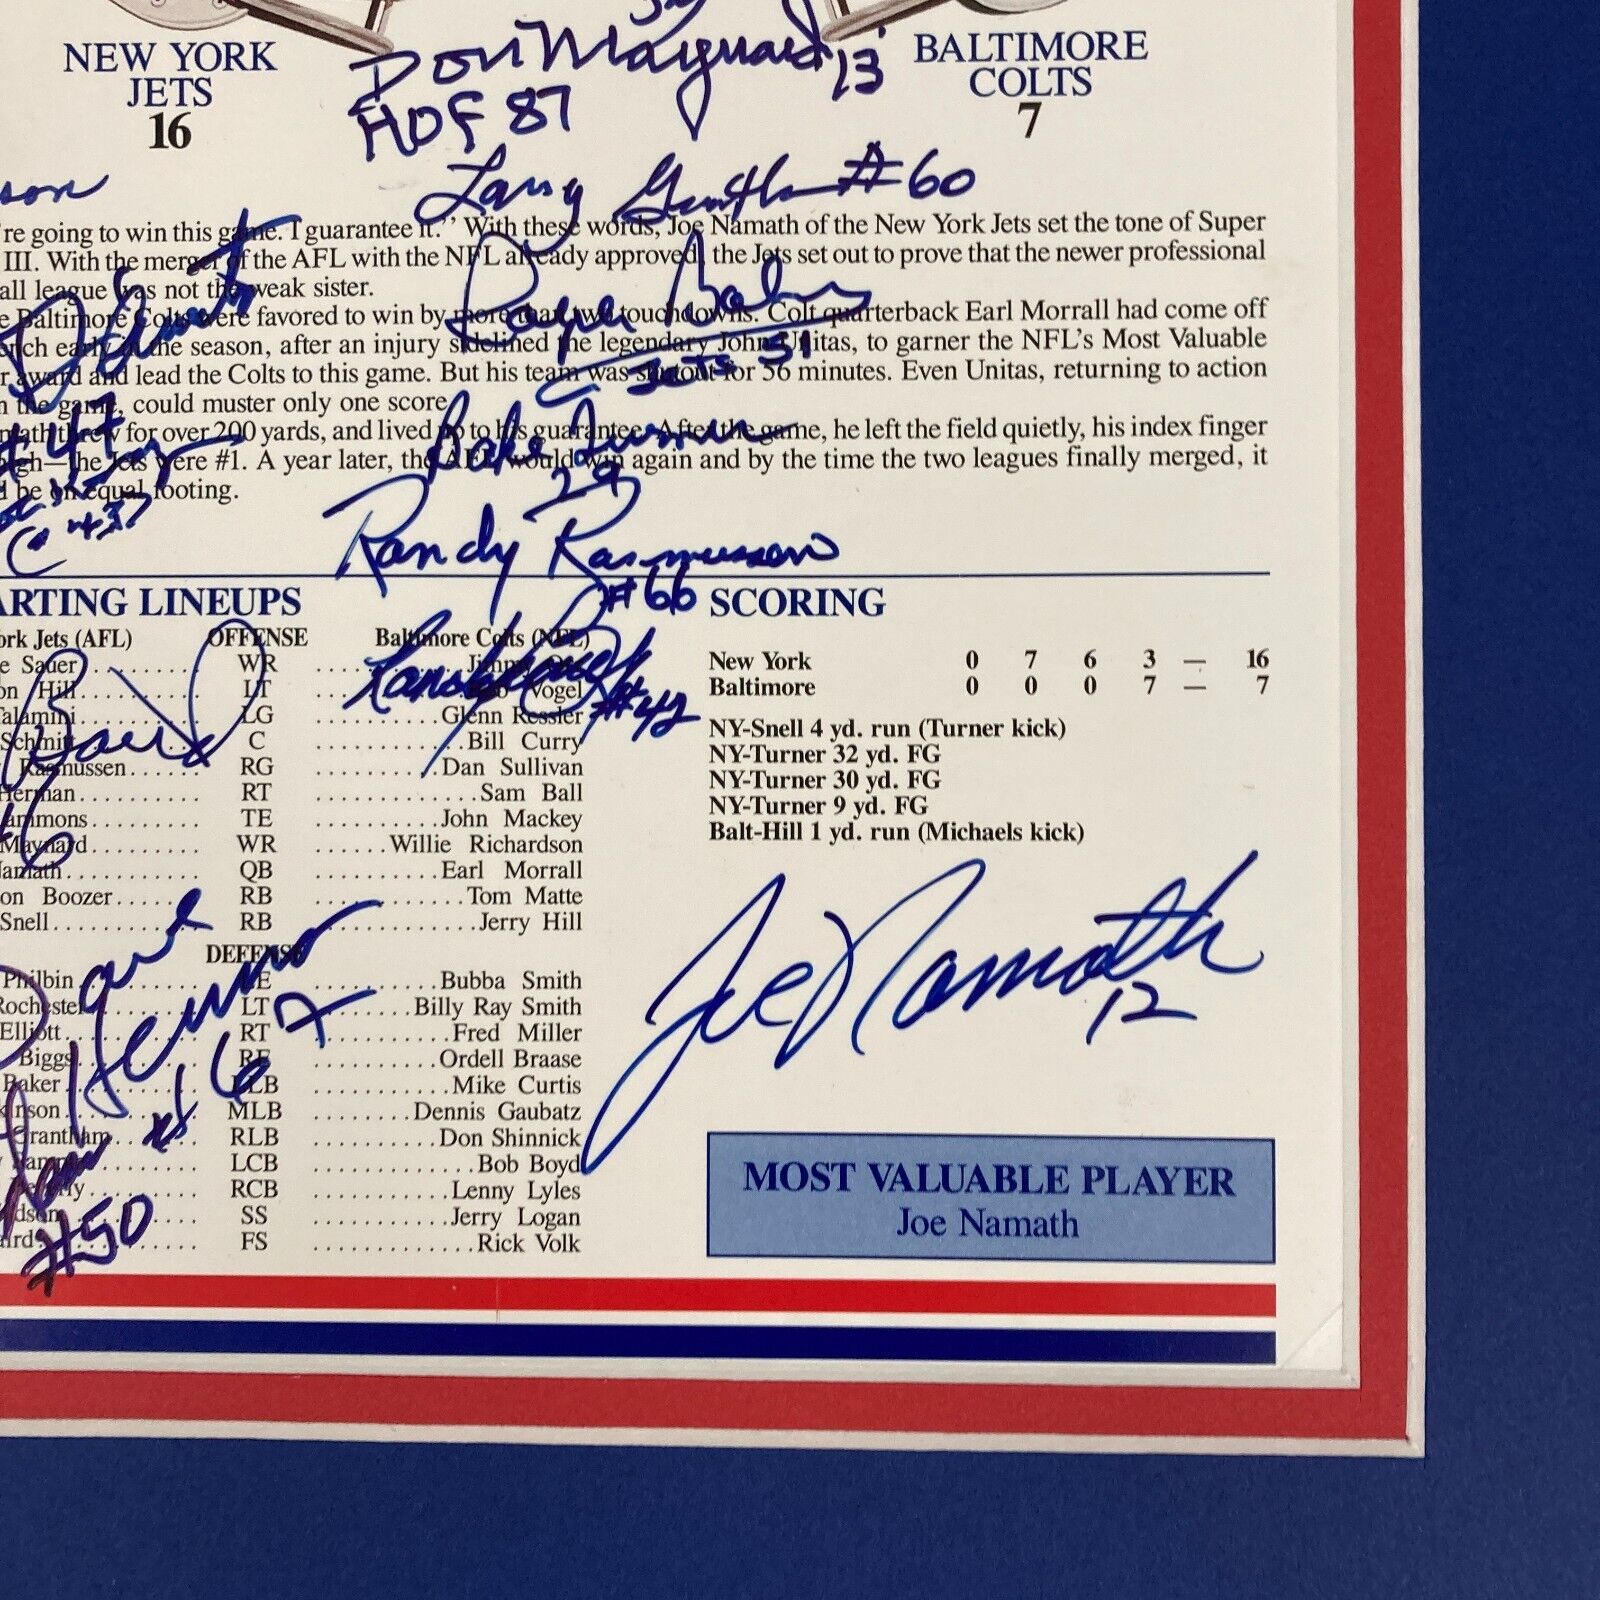 NEW YORK
JETS
16
BALTIMORE
COLTS
7
Don Maynard 13
HOF 87
Larry Grantham #60
're going to win this game. I guarantee it." With these words, Joe Namath of the New York Jets set the tone of Super
III. With the merger of the AFL with the NFL already approved, the Jets set out to prove that the newer professional
all league was not the weak sister.
e Baltimore Colts were favored to win by more than two touchdowns. Colt quarterback Earl Morrall had come off
ench early in the season, after an injury sidelined the legendary John Unitas, to garner the NFL's Most Valuable
r award and lead the Colts to this game. But his team was shutout for 56 minutes. Even Unitas, returning to action
n the game, could muster only one score.
math threw for over 200 yards, and lived up to his guarantee. After the game, he left the field quietly, his index finger
igh—the Jets were #1. A year later, the AFL would win again and by the time the two leagues finally merged, it
d be on equal footing.
Ralph Baker
Jets 51
#47
29
Randy Rasmussen
#66
ARTING LINEUPS
ork Jets (AFL) OFFENSE Baltimore Colts (NFL)
e Sauer WR Jimmy Orr
on Hill LT Bob Vogel
Talamini LG Glenn Ressler
Schmitt C Bill Curry
Rasmussen RG Dan Sullivan
Herman RT Sam Ball
ammons TE John Mackey
Maynard WR Willie Richardson
Namath QB Earl Morrall
on Boozer RB Tom Matte
Snell RB Jerry Hill
DEFENSE
Philbin LE Bubba Smith
Rochester LT Billy Ray Smith
Elliott RT Fred Miller
Biggs RE Ordell Braase
Baker LLB Mike Curtis
kinson MLB Dennis Gaubatz
Grantham RLB Don Shinnick
LCB Bob Boyd
RCB Lenny Lyles
dson SS Jerry Logan
aird FS Rick Volk
#42
Dave Herman
#67
#50
SCORING
New York 0 7 6 3 — 16
Baltimore 0 0 0 7 — 7
NY-Snell 4 yd. run (Turner kick)
NY-Turner 32 yd. FG
NY-Turner 30 yd. FG
NY-Turner 9 yd. FG
Balt-Hill 1 yd. run (Michaels kick)
Joe Namath
12
MOST VALUABLE PLAYER
Joe Namath